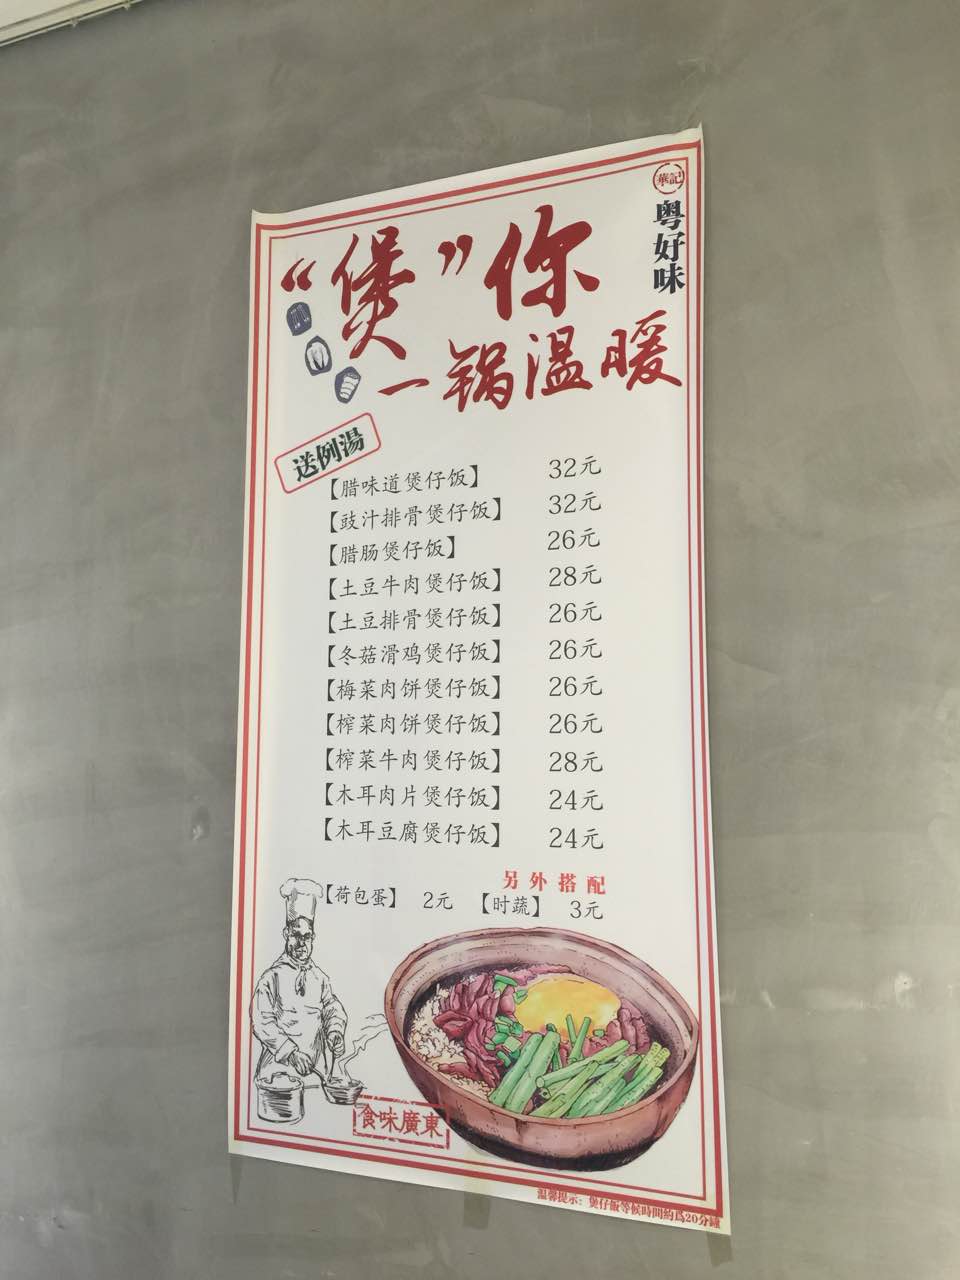 華記
粤好味
“煲”你
一锅温暖
送例湯
【腊味道煲仔饭】 32元
【豉汁排骨煲仔饭】 32元
【腊肠煲仔饭】 26元
【土豆牛肉煲仔饭】 28元
【土豆排骨煲仔饭】 26元
【冬菇滑鸡煲仔饭】 26元
【梅菜肉饼煲仔饭】 26元
【榨菜肉饼煲仔饭】 26元
【榨菜牛肉煲仔饭】 28元
【木耳肉片煲仔饭】 24元
【木耳豆腐煲仔饭】 24元
另外搭配
【荷包蛋】 2元 【时蔬】 3元
食味廣東
温馨提示：煲仔飯等候時間約爲20分鐘